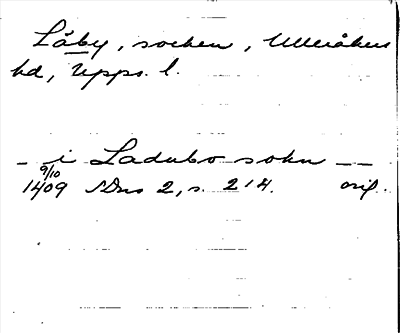 Låby, socken, Ulleråkers
hd, Upps. l.
– i Ladubo sokn – –
9/10
1409 SDns 2, s. 214. orig.